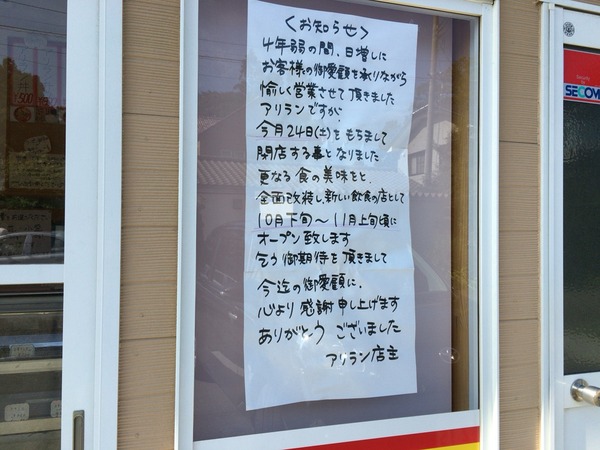 <お知らせ>
4年弱の間、日増しに
お客様の御愛顧を承りながら
愉しく営業させて頂きました
アリランですが、
今月24日(土)をもちまして
閉店する事となりました
更なる食の美味をと、
全面改装し、新しい飲食の店として
10月下旬～11月上旬頃に
オープン致します
乞う御期待を頂きまして
今迄の御愛顧に、
心より感謝申し上げます
ありがとうございました
アリラン店主
SECOM
¥500